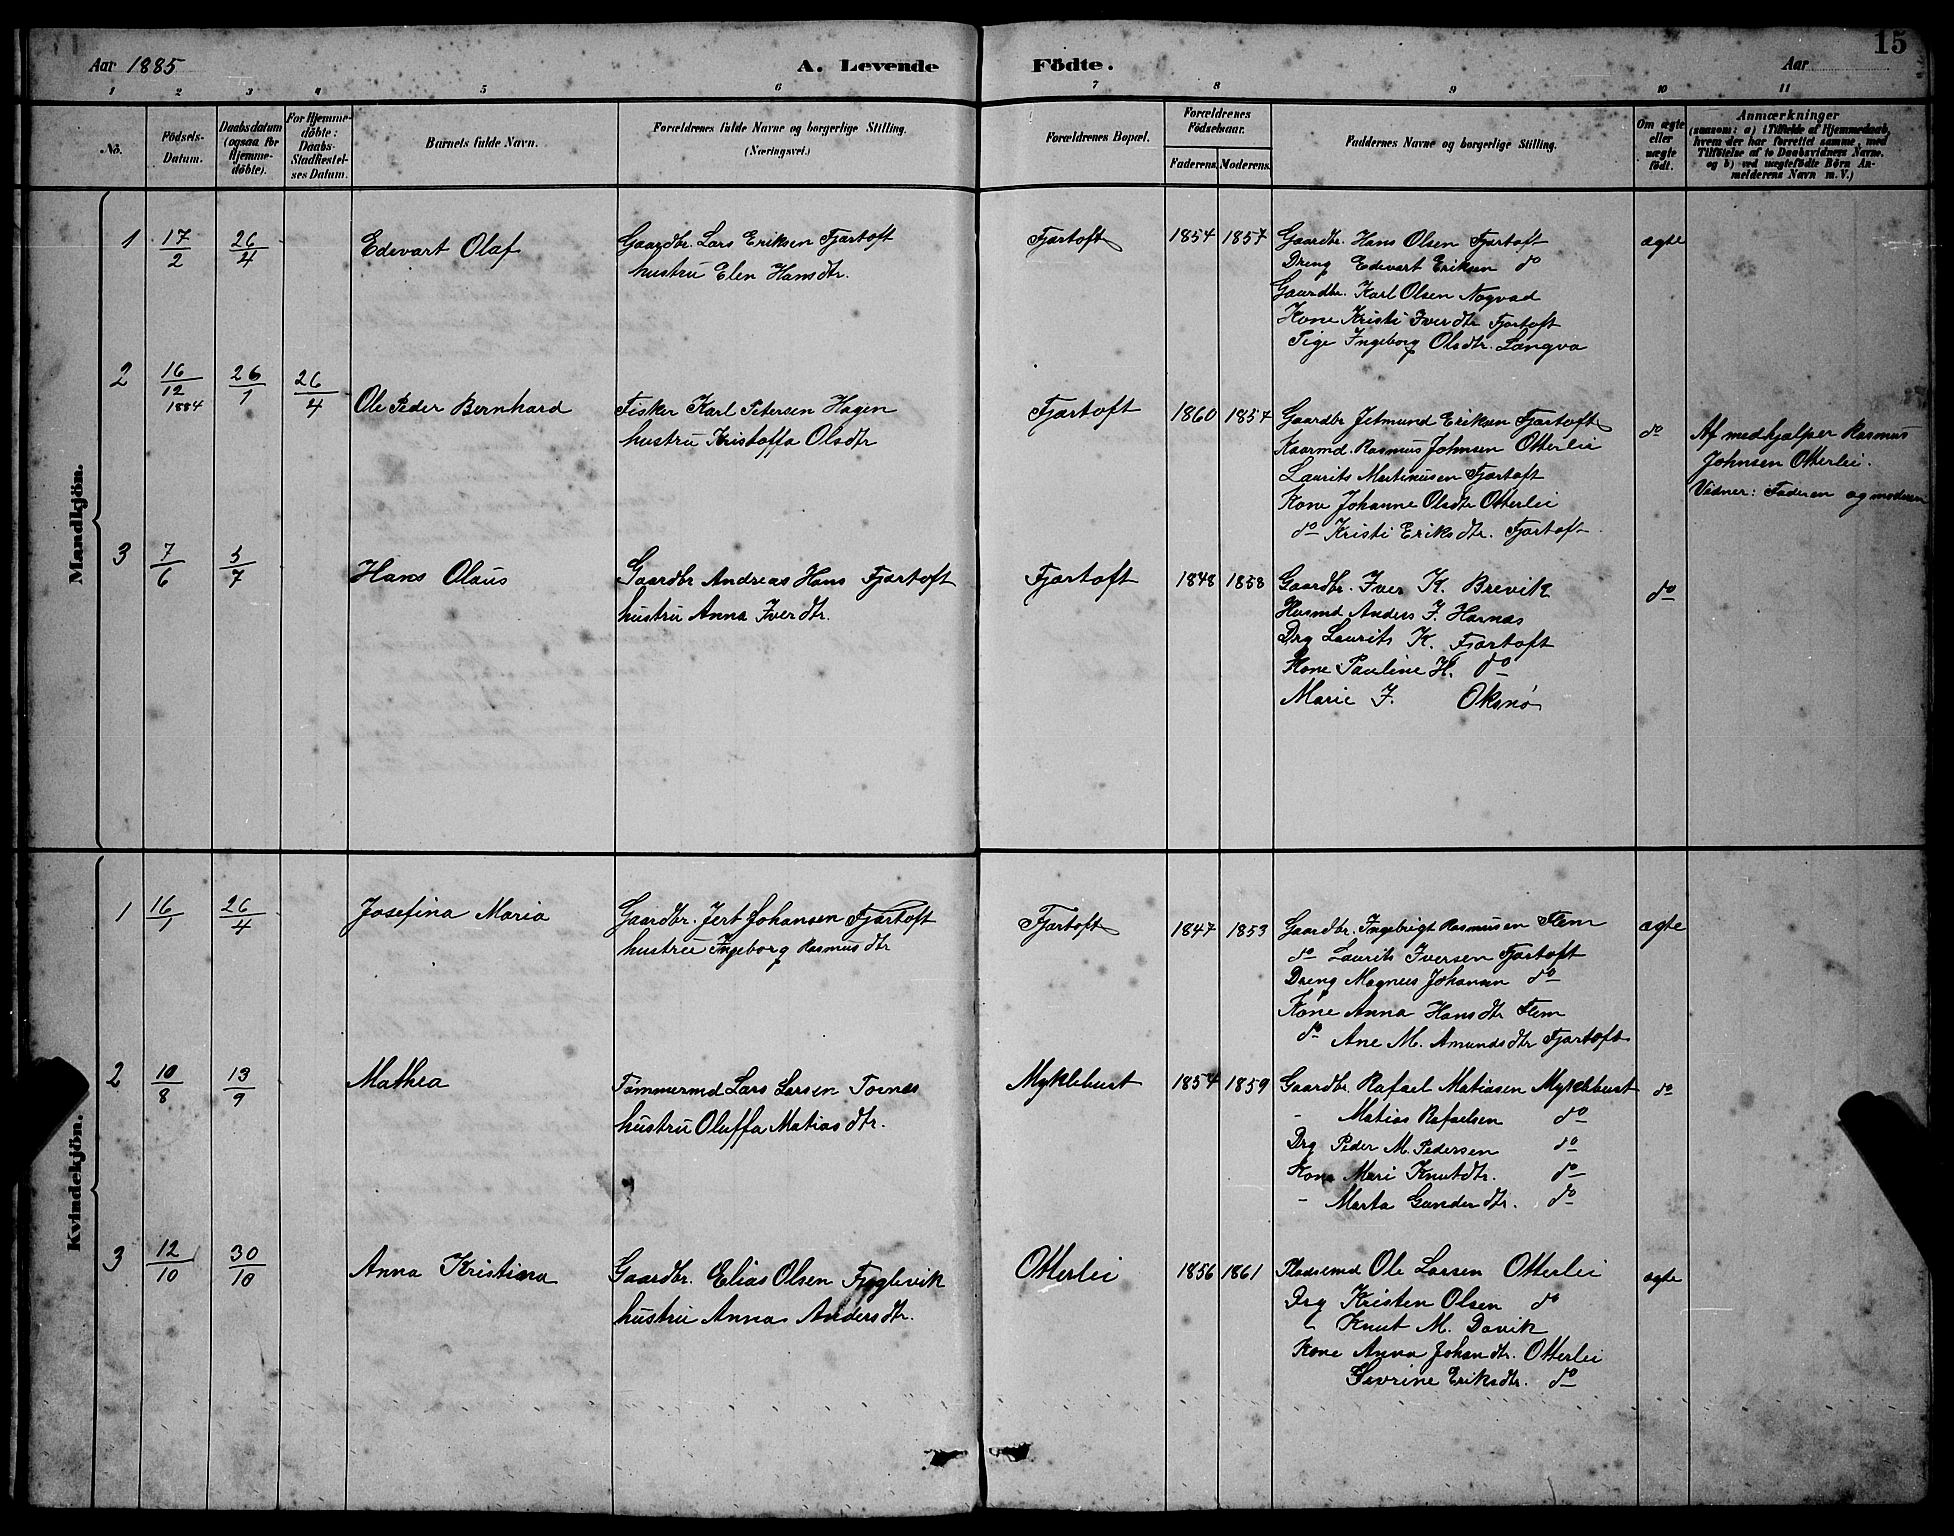 15
Aar 1885 A. Levende Födte. Aar
1 2 3 4 5 6 7 8 9 10 11
No.
Födsels-
Datum.
Daabsdatum
(ogsaa for
Hjemme-
döbte).
For Hjemme-
döbte:
Daabs-
Stadfestel-
ses Datum.
Barnets fulde Navn.
Forældrenes fulde Navne og borgerlige Stilling.
(Næringsvei.)
Forældrenes Bopæl.
Forældrenes
Födselsaar.
Faderens. Moderens.
Faddernes Navne og borgerlige Stilling.
Om ægte
eller
uægte
født.
Anmærkninger
(saasom: a) i Tilfælde af Hjemmedaab,
hvem der har forrettet samme, med
Tilföielse af to Daabsvidners Navne,
og b) ved uægtefödte Börn An-
melderens Navn m. V.)
Mandkjön.
1 17/2 26/4 Edevart Olaf
Gaardbr. Lars Eriksen Fjærtoft
hustru Elen Hansdtr.
Fjærtoft 1854 1857
Gaardbr. Hans Olsen Fjærtoft
Dreng Edevart Eriksen do
Gaardbr. Karl Olsen Nogvad
Kone Kristi Iverdtr Fjærtoft
Pige Ingeborg Olsdtr. Langva
ægte
2 16/12 1884 26/1 26/4 Ole Peder Bernhard
Fisker Karl Petersen Hagen
hustru Kristoffa Olsdtr
Fjærtoft 1860 1854
Gaardbr Jetmund Eriksen Fjærtoft
Kaarmd. Rasmus Johnsen Otterlei
Laurits Martinusen Fjærtoft
Kone Johanne Olsdtr Otterlei
do Kristi Eriksdtr. Fjærtoft
do
Af medhjælper Rasmus
Johnsen Otterlei.
Vidner: Faderen og moderen
3 7/6 5/7 Hans Olaus
Gaardbr Andreas Hans Fjærtoft
hustru Anna Iverdtr.
Fjærtoft 1848 1858
Gaardbr. Iver K. Brevik
Husmd Anders J. Harnæs
Drg Laurits K. Fjærtoft
Kone Pauline H. do
Marie J. Oksnø
do
Kvindekjön.
1 16/1 26/4 Josefina Maria
Gaardbr. Jert Johansen Fjærtoft
hustru Ingeborg Rasmusdtr
Fjærtoft 1847 1853
Gaardbr. Ingebrigt Rasmusen Flem
do Laurits Iversen Fjærtoft
Dreng Magnus Johansen do
Kone Anna Hansdtr Flem
do Ane M. Amundsdtr Fjærtoft
ægte
2 10/8 13/9 Mathea
Tømmermd Lars Larsen Tornes
hustru Oluffa Matiasdtr.
Myklebust 1854 1859
Gaardbr. Rafael Matiasen Myklebust
- Matias Rafaelsen do
Drg Peder M. Pedersen do
Kone Mari Knutdtr. do
- Marta Gunderdtr. do
do
3 12/10 30/10 Anna Kristiana
Gaardbr. Elias Olsen Fyglevik
hustru Anna Andersdtr.
Otterlei 1856 1861
Pladsemd Ole Larsen Otterlei
Drg Kristen Olsen do
- Knut M. Davik
Kone Anna Johandtr. Otterlei
Sivrine Eriksdtr. do
ægte